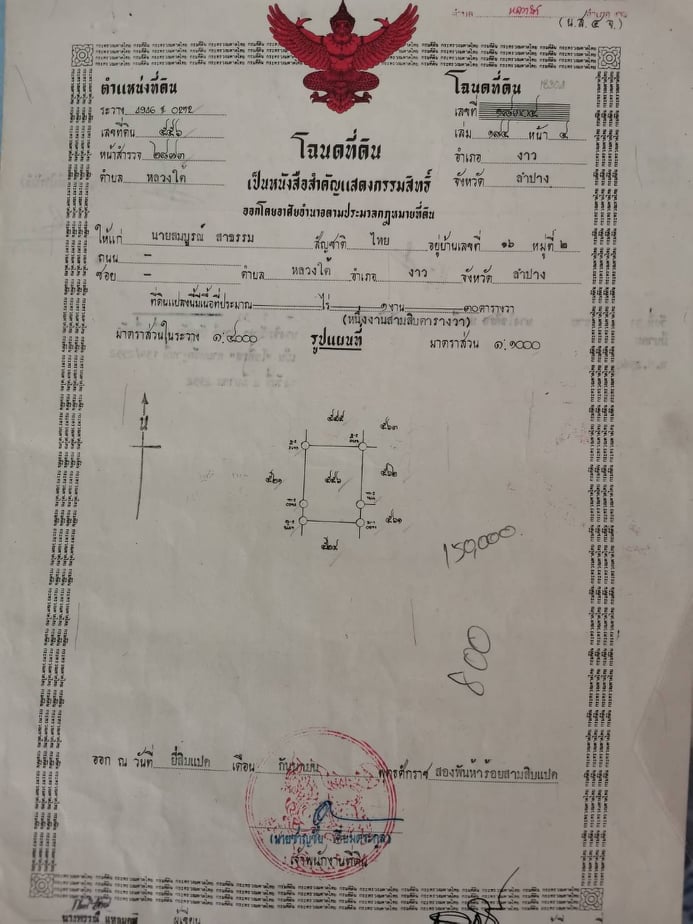 (น.ส. ๔ จ.)
ตำแหน่งที่ดิน
ระวาง
เลขที่ดิน ๔๕๖
หน้าสำรวจ ๒๘๗๓
ตำบล หลวงใต้
โฉนดที่ดิน
เลขที่
เล่ม ๑๘๔ หน้า ๔
อำเภอ งาว
จังหวัด ลำปาง
โฉนดที่ดิน
เป็นหนังสือสำคัญแสดงกรรมสิทธิ์
ออกโดยอาศัยอำนาจตามประมวลกฎหมายที่ดิน
ให้แก่ นายสมบูรณ์ สาธรรม สัญชาติ ไทย อยู่บ้านเลขที่ ๑๖ หมู่ที่ ๒
ถนน –
ซอย – ตำบล หลวงใต้ อำเภอ งาว จังหวัด ลำปาง
ที่ดินแปลงนี้มีเนื้อที่ประมาณ ไร่ ๑ งาน ๓๐ ตารางวา
(หนึ่งงานสามสิบตารางวา)
มาตราส่วนในระวาง ๑:๔๐๐๐ รูปแผนที่ มาตราส่วน ๑:๑๐๐๐
น
๔๕๕
๕๖๓
๕๒๑ ๔๕๖ ๕๖๒
๕๖๑
๕๒๙
150,000
800
ออก ณ วันที่ ยี่สิบแปด เดือน กันยายน พุทธศักราช สองพันห้าร้อยสามสิบแปด
เจ้าพนักงานที่ดิน